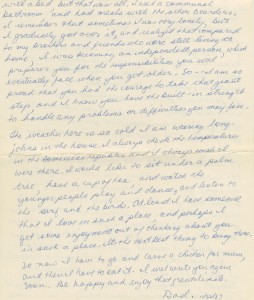 with a bed but that was all, I had a communal
bathroom and had meals with the other boarders.
I remember that sometimes I was very lonely, but
I gradually got over it, and realized that compared
to my brothers and friends who were still living at
home, I was becoming an independent person, which
prepares you for the responsibilities you will
eventually face when you get older. So I am so
proud that you had the courage to take that giant
step and I know you have the built-in strength
to handle any problems or difficulties you may face.
The weather here is so cold I am wearing long
johns in the house. I always check the temperature
in the Dominican Republic and it always is
over there. I would like to sit under a palm
tree, have a cup of tea, and watch the
younger people play and dance, and listen to
the surf and the birds. At least I have someone
that I love in such a place, and perhaps I
get some enjoyment out of thinking about you
in such a place. It's the next best thing to being there.
So now I have to go and carve a chicken for mum,
and then I have to eat it. I will write you again
soon. Be happy and enjoy that
Dad.